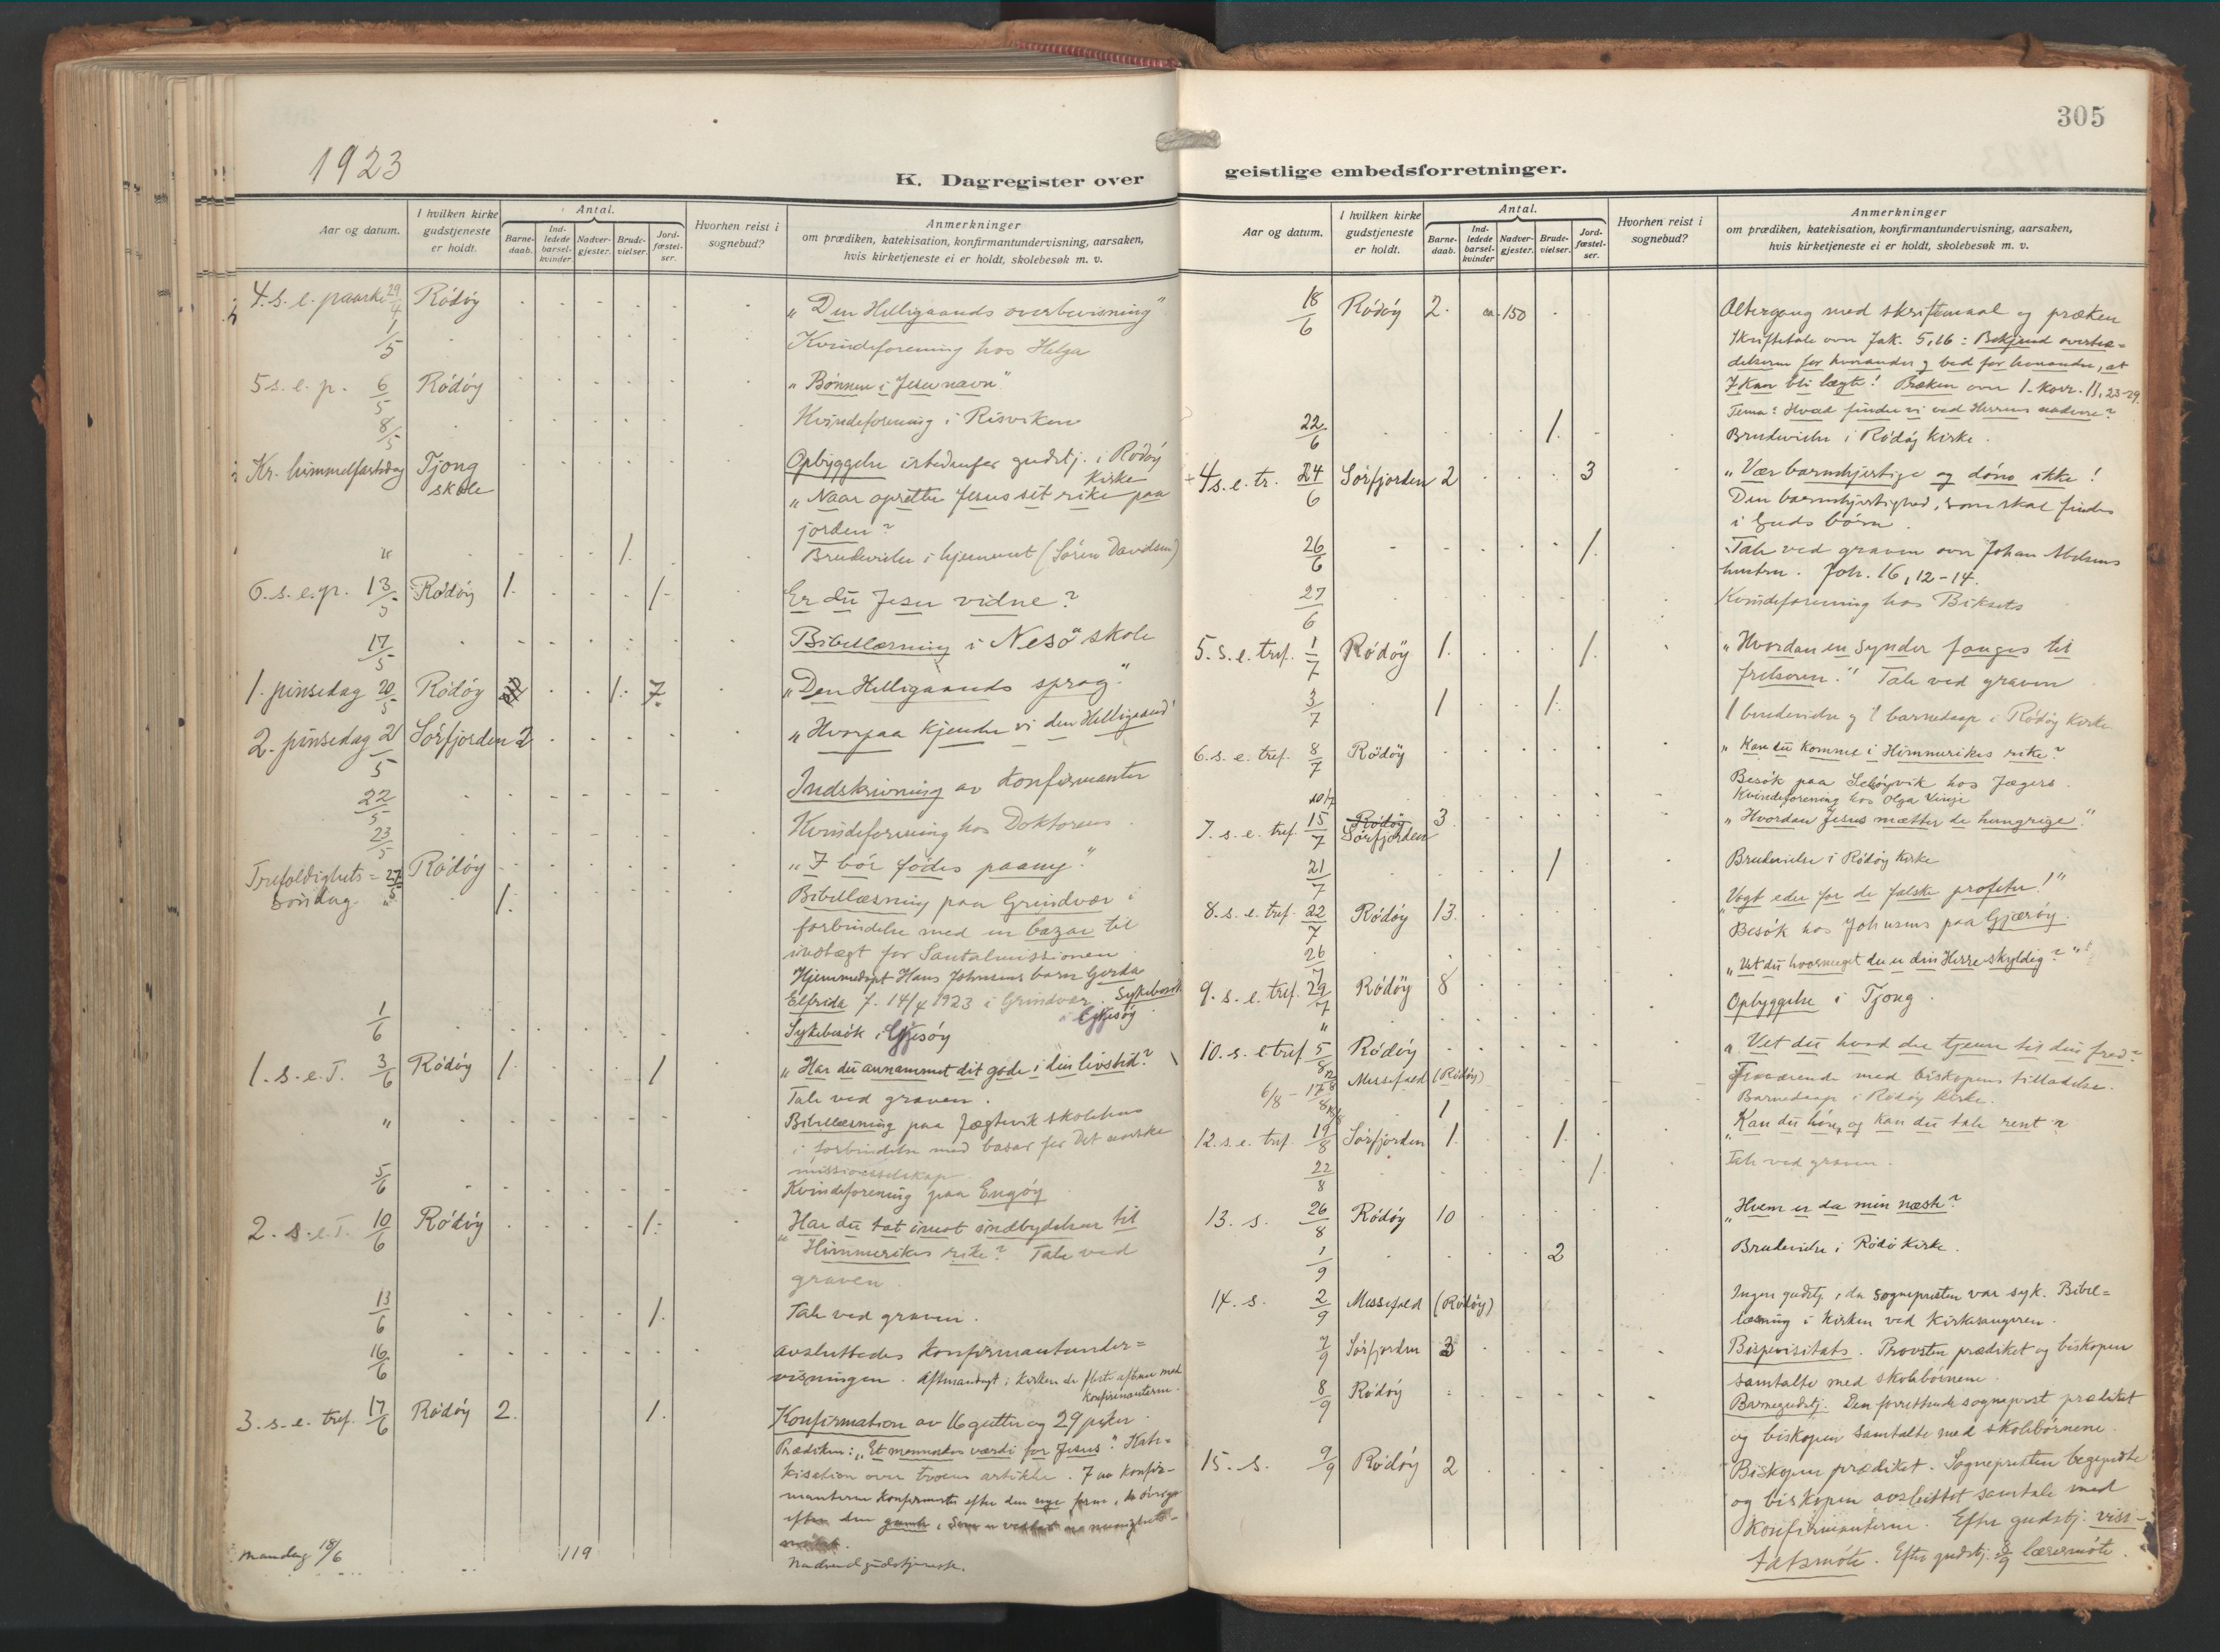 1923
K. Dagregister over
Aar og datum.
I hvilken kirke gudstjeneste er holdt.
Antal.
Barne-daab.
Ind-ledede barsel-kvinder.
Nadver-gjester.
Brude-vielser.
Jord-fæstel-ser.
Hvorhen reist i sognebud?
Anmerkninger
om prædiken, katekisation, konfirmantundervisning, aarsaken,
hvis kirketjeneste ei er holdt, skolebesøk m. v.
4. s. e. paaske 29/4 Rödöy "Den Helligaands overbevisning"
1/5 Kvindeforening hos Helga
5 s. e. p. 6/5 Rödöy "Bönnen i Jesu navn"
8/5 Kvindeforening i Risviken
Kr. himmelfartsdag Tjong skole Opbyggelse istedenfor gudstj. i Rödöy Kirke
"Naar opretter Jesus sit rike paa
jorden?
" 1. Brudevielse i hjemmet (Sören Davidsen)
6. s. e. p. 13/5 Rödöy 1. 1. Er du Jesu vidne?
17/5 Bibellæsning i Nesö skole
1. pinsedag 20/5 Rödöy 1. 7. "Den Helligaands sprog"
2. pinsedag 21/5 Sörfjorden 2 "Hvorpaa kjender vi den Helligaand"
22/5 Indskrivning av konfirmanter
23/5 Kvindeforening hos Doktorens
Trefoldigheds= 27/5 Rödöy "I bör födes paany"
söndag " 1. Bibellæsning paa Grindvær i
forbindelse med en bazar til
indtægt for Santalmissionen
Hjemmedöpt Hans Johnsens barn Gerda
Elfrida f. 14/4 1923 i Grindvær. Sykebesök
1/6 Sykebesök i Gjesöy
1. s. e. T. 3/6 Rödöy 1. 1 "Har du annammet dit gode i din livstid?
Tale ved graven.
" Bibellæsning paa Jægtvik skolehus
i forbindelse med basar for Det norske
missionsselskap
5/6 Kvindeforening paa Engöy
2. s. e. T. 10/6 Rödöy 1. Har du tat imot indbydelsen til
"Himmerikes rike? Tale ved
graven.
13/6 1. Tale ved graven.
16/6 avsluttedes konfirmantunder=
visningen. Aftensandagt i kirken de fleste aftener med
konfirmanterne.
3. s. e. tref. 17/6 Rödöy 2. 1. Konfirmation av 16 gutter og 29 piker.
Prædiken: "Et menneskes værdi for Jesus". Kate=
kisation over troens artikkle. 7 av konfir=
manterne konfirmertes efter den nye form, de övrige
efter den gamle, som er vedtat av menighets=
mandag 18/6 119 Nadverdgudstjeneste.
305
geistlige embedsforretninger.
Aar og datum.
I hvilken kirke gudstjeneste er holdt.
Antal.
Barne-daab.
Ind-ledede barsel-kvinder
Nadver-gjester.
Brude-vielser.
Jord-fæstel-ser.
Hvorhen reist i sognebud?
Anmerkninger
om prædiken, katekisation, konfirmantundervisning, aarsaken,
hvis kirketjeneste ei er holdt, skolebesøk m. v.
18/6 Rödöy 2. ca. 150 Altergang med skriftemaal og præken
Skriftetale over Jak. 5,16: Bekjend overtræ=
delserne for hverandre og bed for hverandre, at
I kan bli lægte! Præken over 1. Kor. 11, 23-29.
Tema: Hvad finder vi ved Herrens nadvere?
22/6 1. Brudevielse i Rödöy Kirke.
4 s. e. tr. 24/6 Sörfjorden 2 3 "Vær barmhjertige og döm ikke!
Den barmhjertighed, som skal findes
i Guds börn.
26/6 1. Tale ved graven over Johan Abelsens
hustru. Joh. 16, 12-14.
27/6 Kvindeforening hos Biksets
5. s. e. tref. 1/7 Rödöy 1. 1. "Hvordan en synder fanges til
frelseren." Tale ved graven
3/7 1 1. 1 brudevielse og 1 barnedaap i Rödöy Kirke
6. s. e. tref. 8/7 Rödöy "Kan du komme i Himmerikes rike?
Besök paa Selsöyvik hos Jægers.
10/7 Kvindeforening hos Olga Vinje
7. s. e. tref. 15/7 Rödöy Sörfjorden 3 "Hvordan Jesus mætter de hungrige."
21/7 1 Brudevielse i Rödöy Kirke
8. s. e. tref. 22/7 Rödöy 13. "Vogt eder for de falske profeter!"
26/7 Besök hos Johnsens paa Gjæröy.
9. s. e. tref. 29/7 Rödöy 8 "Vet du hvormeget du er din Herre skyldig?"
" Opbyggelse i Tjong.
10. s. e. tref. 5/8 Rödöy "Vet du hvad der tjener til din fred?
6/8 - 17/8 12/8 Messefald (Rödöy) Fraværende med biskopens tilladelse.
1 Barnedaap i Rödöy Kirke.
12. s. e. tref. 19/8 Sörfjorden 1. 1. "Kan du höre, og kan du tale rent?
22/8 1. Tale ved graven.
13. s. 26/8 Rödöy 10 "Hvem er da min næste?
1/9 2 Brudevielse i Rödö Kirke.
14. s. 2/9 Messefald (Rödöy) Ingen gudstj., da sognepresten var syk. Bibel=
læsning i kirken ved kirkesangeren.
7/9 Sörfjorden 3 Bispevisitats. Provsten prædiket og biskopen
samtalte med skolebörnene.
8/9 Rödöy Barnegudstj. Den forrettende sogneprest prædiket
og biskopen samtalte med skolebörnene.
15. s. 9/9 Rödöy 2 Biskopen prædiket. Sognepresten begyndte
og biskopen avsluttet samtale med
konfirmanterne. Efter gudstj. visi=
tatsmöte. Efter gudstj. 8/9 læremöte.